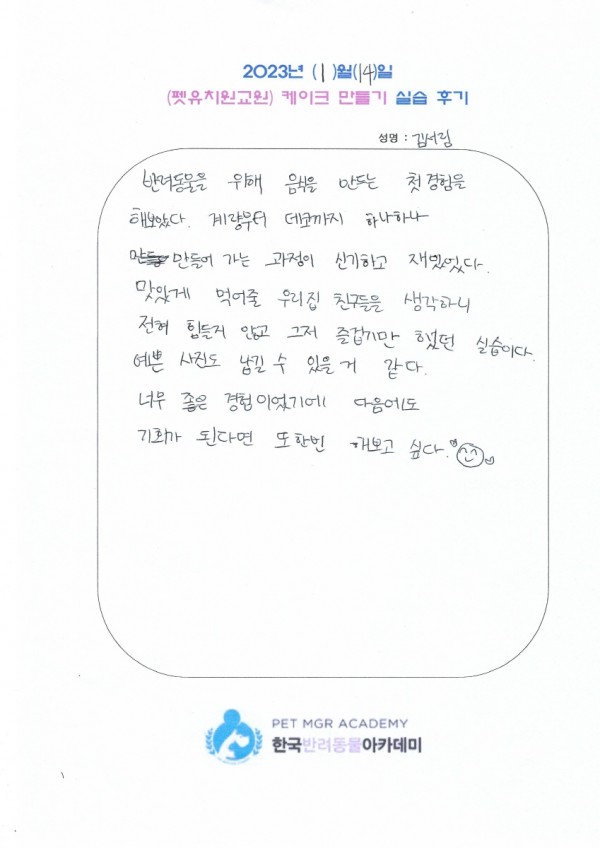 2023년 (1)월(14)일
(펫유치원교원) 케이크 만들기 실습 후기
성명 : 김서림
반려동물을 위해 음식을 만드는 첫 경험을
해보았다. 계량부터 데코까지 하나하나
만들어 가는 과정이 신기하고 재밌었다.
맛있게 먹어줄 우리집 친구들을 생각하니
전혀 힘들지 않고 그저 즐겁기만 했던 실습이다.
예쁜 사진도 남길 수 있을 거 같다.
너무 좋은 경험이었기에 다음에도
기회가 된다면 또한번 해보고 싶다.
PET MGR ACADEMY
한국반려동물아카데미